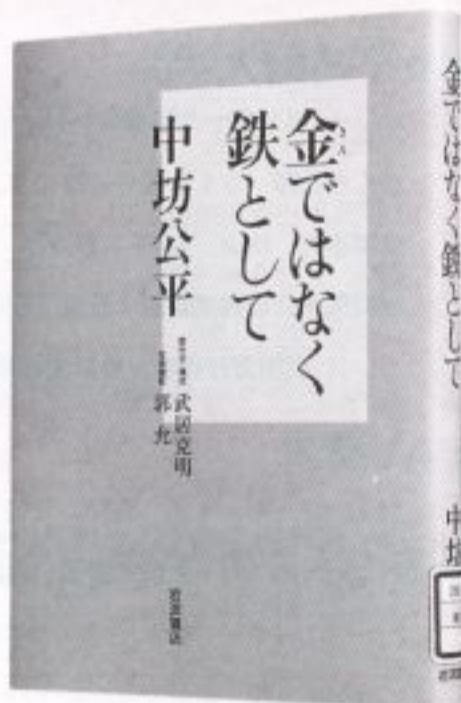 金ではなく
きん
鉄として
中坊公平
武居克明
郭允
岩波書店
金ではなく鉄として
中坊